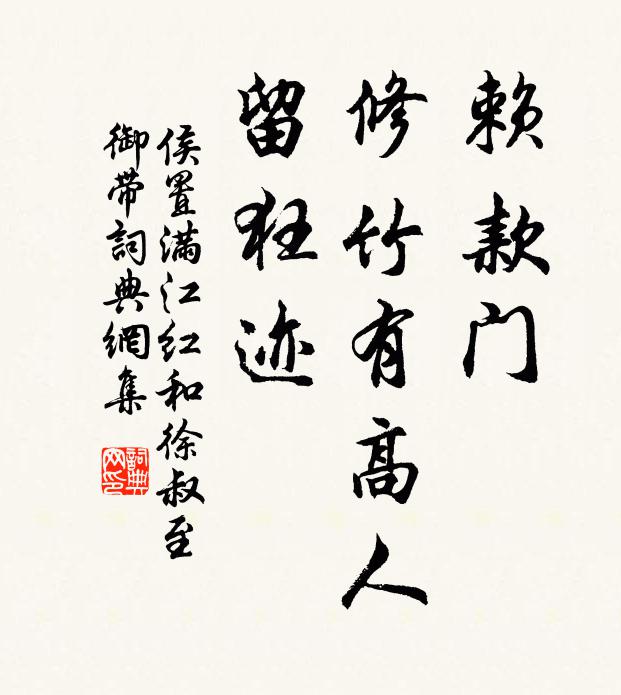 赖款门
修竹有高人
留狂迹
侯置满江红和徐叔至
御带词典网集
詞典网印